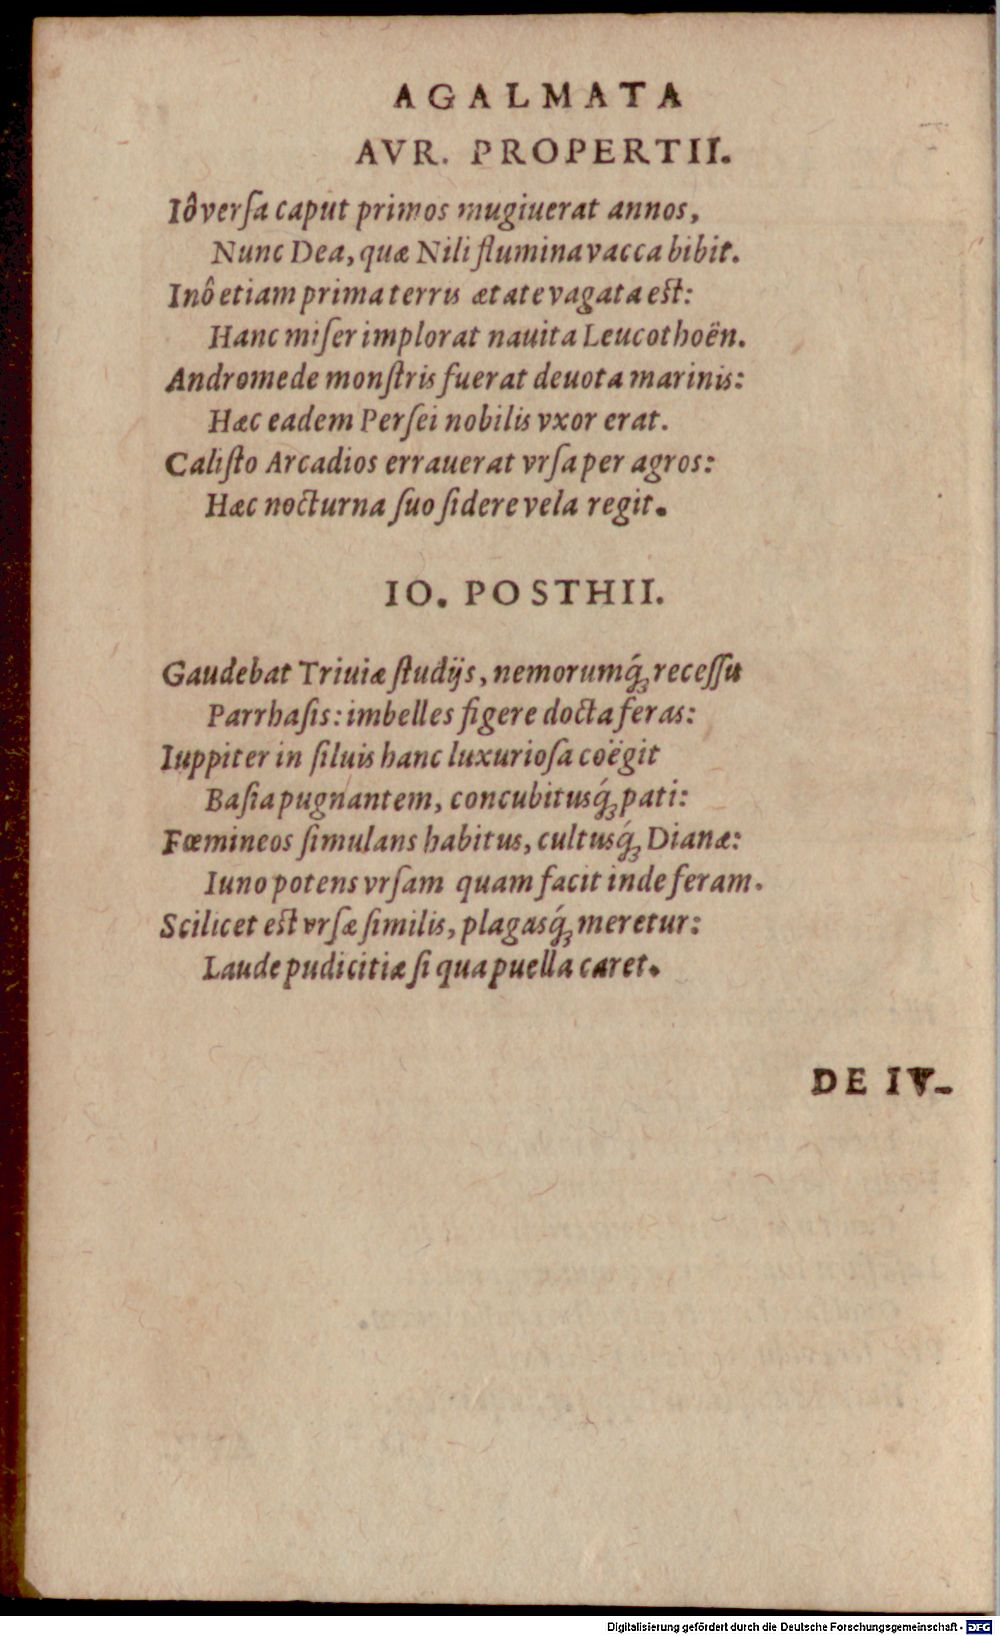 AGALMATA
AVR. PROPERTII.
Iô verſa caput primos mugiuerat annos,
Nunc Dea, quæ Nili flumina vacca bibit.
Inô etiam prima terris ætate vagata est:
Hanc miſer implorat nauita Leucothoën.
Andromede monſtris fuerat deuota marinis:
Hæc eadem Perſei nobilis vxor erat.
Caliſto Arcadios errauerat vrſa per agros:
Hæc nocturna ſuo ſidere vela regit.
IO. POSTHII.
Gaudebat Triuiæ ſtudijs, nemorumq́; receſſu
Parrhaſis: imbelles figere docta feras:
Iuppiter in ſiluis hanc luxurioſa coëgit
Baſia pugnantem, concubitusq́; pati:
Fœmineos ſimulans habitus, cultusq́; Dianæ:
Iuno potens vrſam quam facit inde feram.
Scilicet est vrſæ ſimilis, plagasq́; meretur:
Laude pudicitiæ ſi qua puella caret.
DE IV-
Digitalisierung gefördert durch die Deutsche Forschungsgemeinschaft - DFG